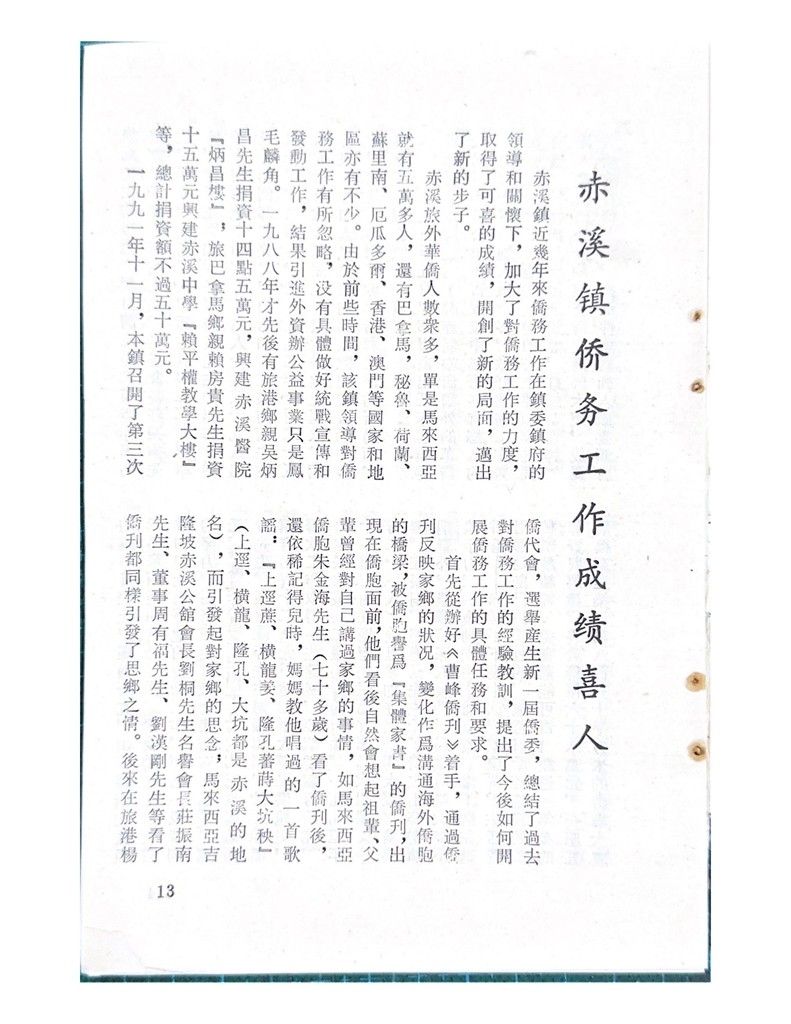 赤溪镇侨务工作成绩喜人
赤溪鎮近幾年來僑務工作在鎮委鎮府的
領導和關懷下，加大了對僑務工作的力度，
取得了可喜的成績，開創了新的局面，邁出
了新的步子。
赤溪旅外華僑人數衆多，單是馬來西亞
就有五萬多人，還有巴拿馬，秘魯、荷蘭、
蘇里南、厄瓜多爾、香港、澳門等國家和地
區亦有不少。由於前些時間，該鎮領導對僑
務工作有所忽略，没有具體做好統戰宣傳和
發動工作，結果引進外資辦公益事業只是鳳
毛麟角。一九八八年才先後有旅港鄉親吳炳
昌先生捐資十四點五萬元，興建赤溪醫院
『炳昌樓』，旅巴拿馬鄉親賴房貴先生捐資
十五萬元興建赤溪中學『賴平權教學大樓』
等，總計捐資額不過五十萬元。
一九九一年十一月，本鎮召開了第三次
僑代會，選舉産生新一屆僑委，總結了過去
對僑務工作的經驗教訓，提出了今後如何開
展僑務工作的具體任務和要求。
首先從辦好《曹峰僑刊》着手，通過僑
刊反映家鄉的狀况，變化作爲溝通海外僑胞
的橋梁，被僑胞譽爲『集體家書』的僑刊，出
現在僑胞面前，他們看後自然會想起祖輩、父
輩曾經對自己講過家鄉的事情，如馬來西亞
僑胞朱金海先生（七十多歲）看了僑刊後，
還依稀記得兒時，媽媽教他唱過的一首歌
謡：『上逕蔗、橫龍姜、隆孔蕃蒔大坑秧』
（上逕、橫龍、隆孔、大坑都是赤溪的地
名），而引發起對家鄉的思念；馬來西亞吉
隆坡赤溪公舘會長劉桐先生名譽會長莊振南
先生、董事周有福先生、劉漢剛先生等看了
僑刊都同樣引發了思鄉之情。後來在旅港楊
13